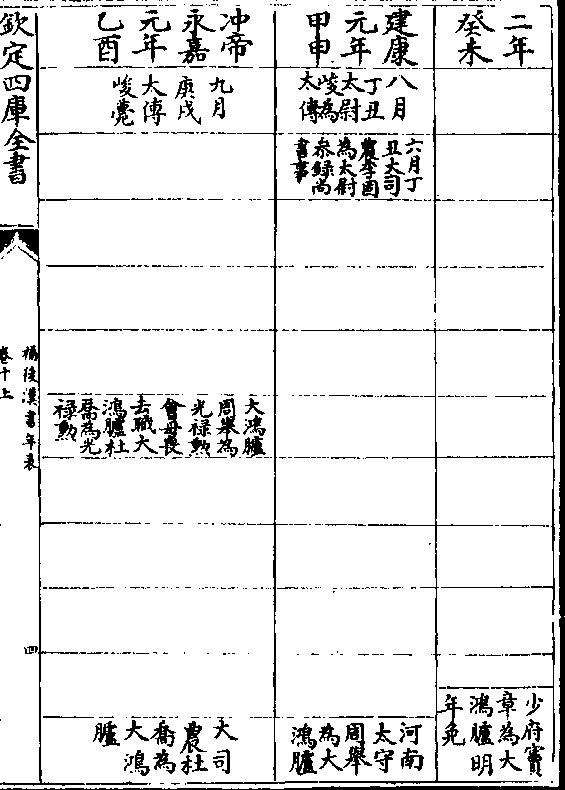 二年
癸未
少府竇
章為大
鴻臚明
年免
建康
元年
甲申
八月
丁丑
太尉
峻為
太傅
六月丁
丑大司
農李固
為太尉
參錄尚
書事
河南
太守
周舉
為大
鴻臚
冲帝
永嘉
元年
乙酉
九月
庚戌
太傅
峻薨
大鴻臚
周舉為
光禄勲
會母喪
去職大
鴻臚杜
喬為光
禄勲
大司
農杜
喬為
大鴻
臚
欽定四庫全書
補後漢書年表
卷十上
四